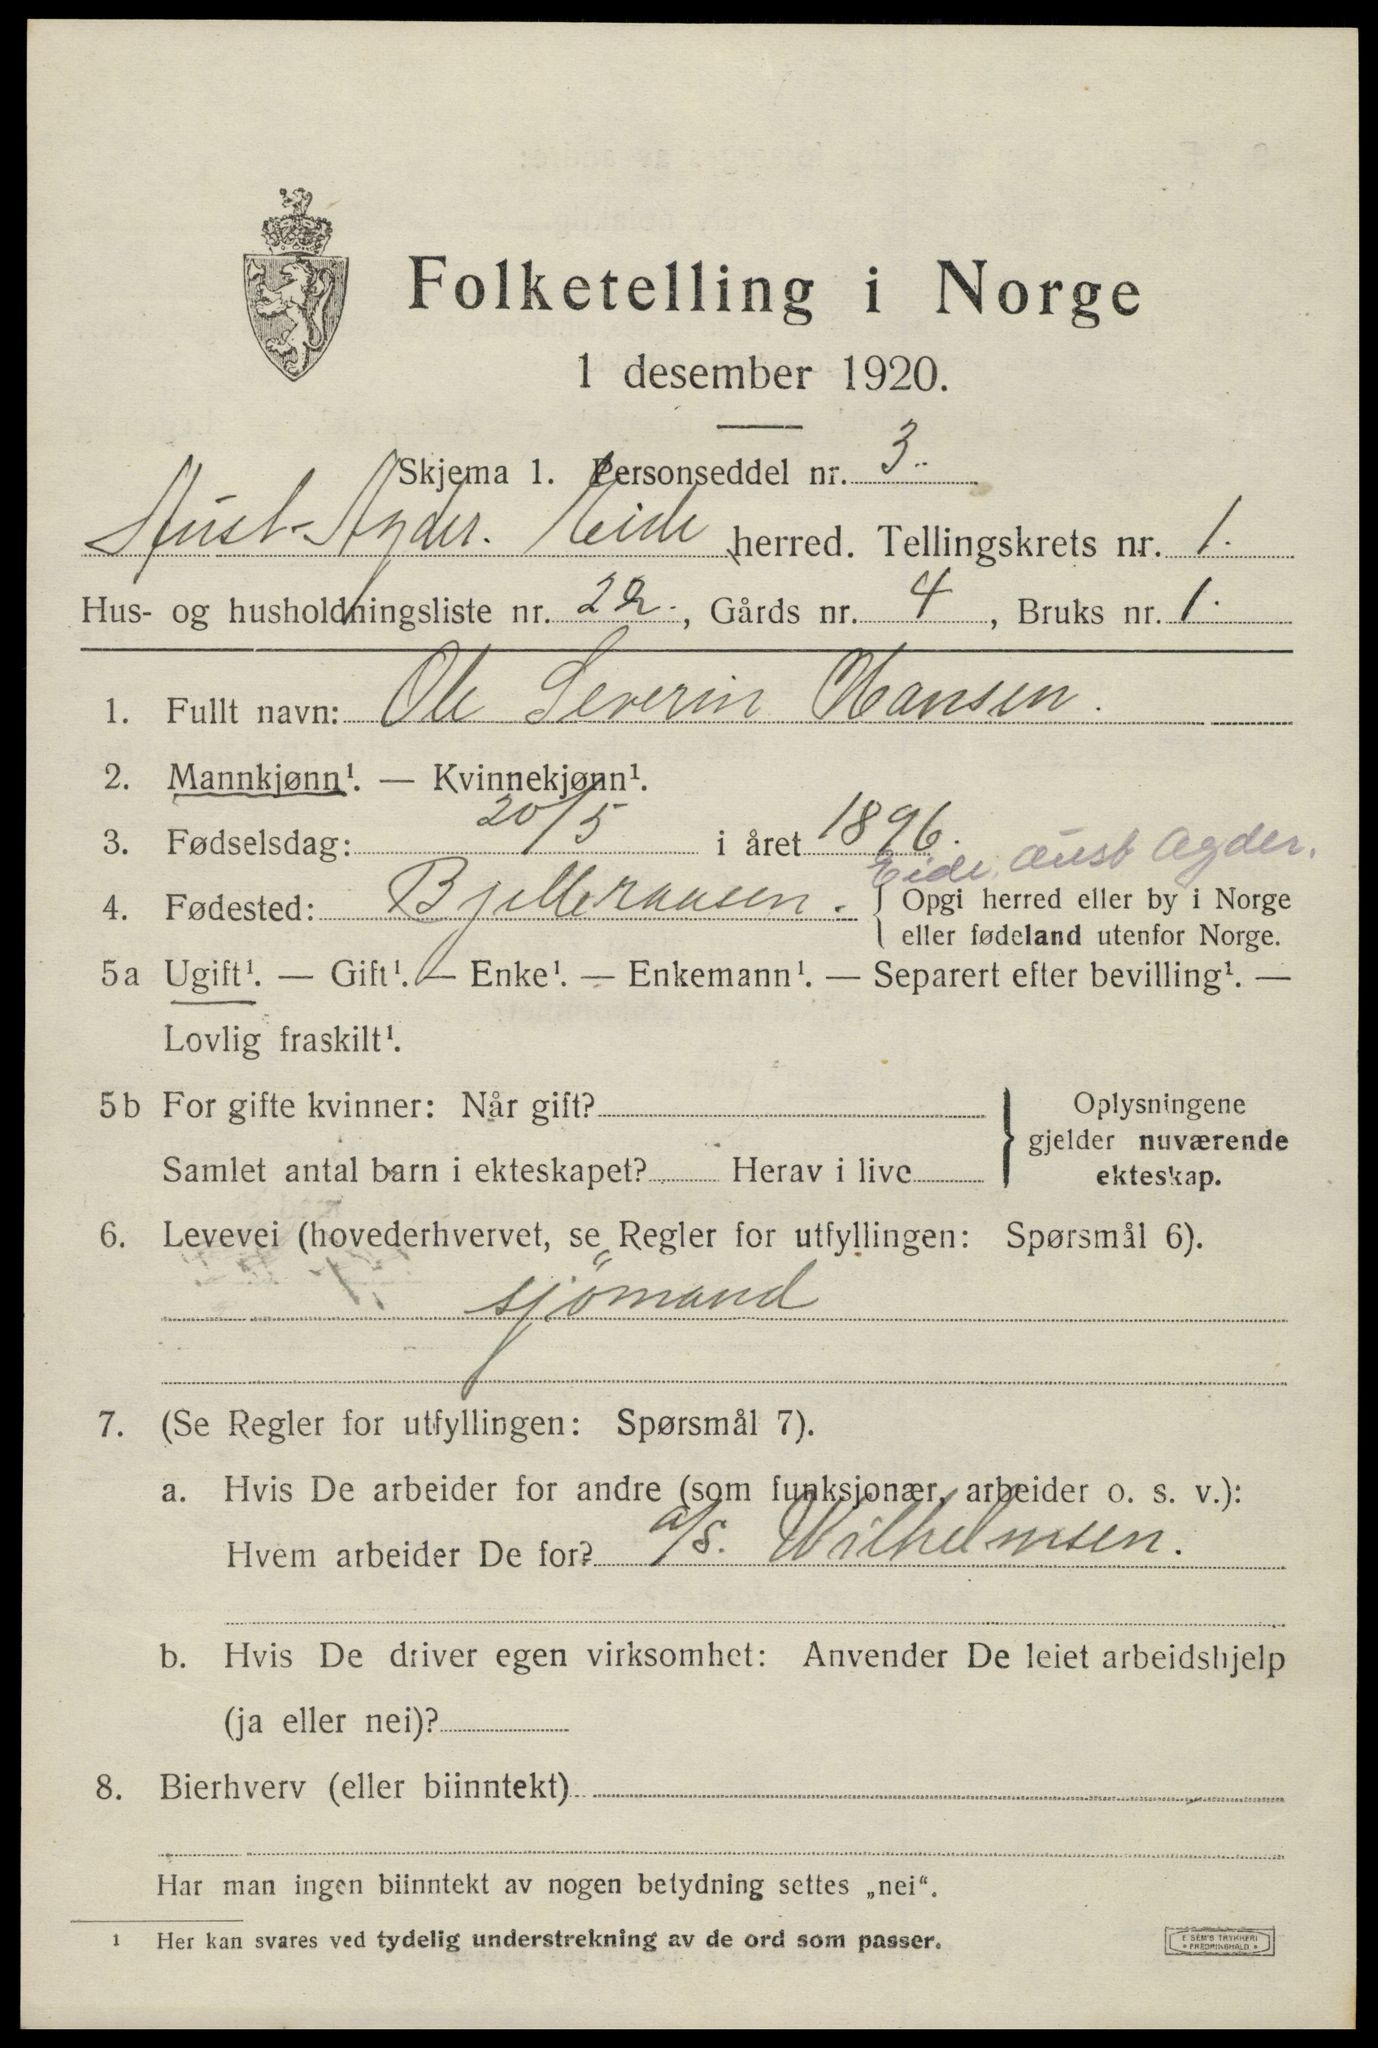 Folketelling i Norge
1 desember 1920.
Skjema 1. Personseddel nr. 3.
Aust-Agder. Eide herred. Tellingskrets nr. 1.
Hus- og husholdningsliste nr. 22., Gårds nr. 4, Bruks nr. 1.
1. Fullt navn: Ole Severin Hansen.
2. Mannkjønn¹. — Kvinnekjønn¹.
3. Fødselsdag: 20/5 i året 1896.
Eide, Aust Agder.
4. Fødested: Bjelleraasen. { Opgi herred eller by i Norge
eller fødeland utenfor Norge.
5a Ugift¹. — Gift¹. — Enke¹. — Enkemann¹. — Separert efter bevilling¹. —
Lovlig fraskilt¹.
5b For gifte kvinner: Når gift? } Oplysningene
gjelder nuværende
Samlet antal barn i ekteskapet? Herav i live ekteskap.
6. Levevei (hovederhvervet, se Regler for utfyllingen: Spørsmål 6).
sjömand
7. (Se Regler for utfyllingen: Spørsmål 7).
a. Hvis De arbeider for andre (som funksjonær, arbeider o. s. v.):
Hvem arbeider De for? a/s. Wilhelmsen.
b. Hvis De driver egen virksomhet: Anvender De leiet arbeidshjelp
(ja eller nei)?
8. Bierhverv (eller biinntekt)
Har man ingen biinntekt av nogen betydning settes „nei“.
¹ Her kan svares ved tydelig understrekning av de ord som passer.
E SEM'S TRYKKERI
• FREDRIKSHALD •